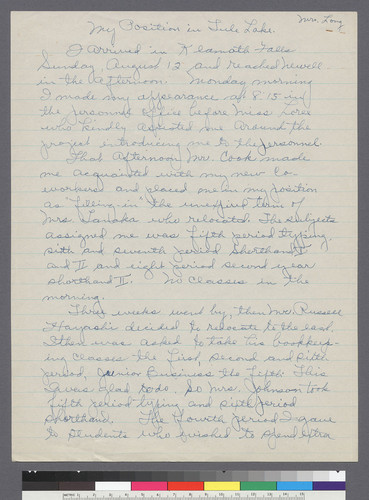 Mrs. Long
My Position in Tule Lake.
I arrived in Klamath Falls
Sunday August 13 and reached Newell
in the afternoon. Monday morning
I made my appearance at 8:15 in
the personnel office before Miss
who kindly assisted me around the
project introducing me to the personnel.
That afternoon Mr. Cook made
me acquainted with my new co-
workers and placed me in my position
as "filling-in" the unexpired term of
Mrs. Tanaka who relocated. The subjects
assigned me was fifth period typing,
sixth and seventh period Shorthand I
and II and eight period second year
shorthand II. No classes in the
morning.
Three weeks went by, then Mr. Russell
Hayashi decided to relocate to the east.
I then was asked to take his bookkeep-
ing classes the first, second and sixth
period, Junior Business the fifth. This
I was glad to do. So Mrs. Johnson took
fifth period typing and sixth period
shorthand. The fourth period I gave
to students who wished to spend extra